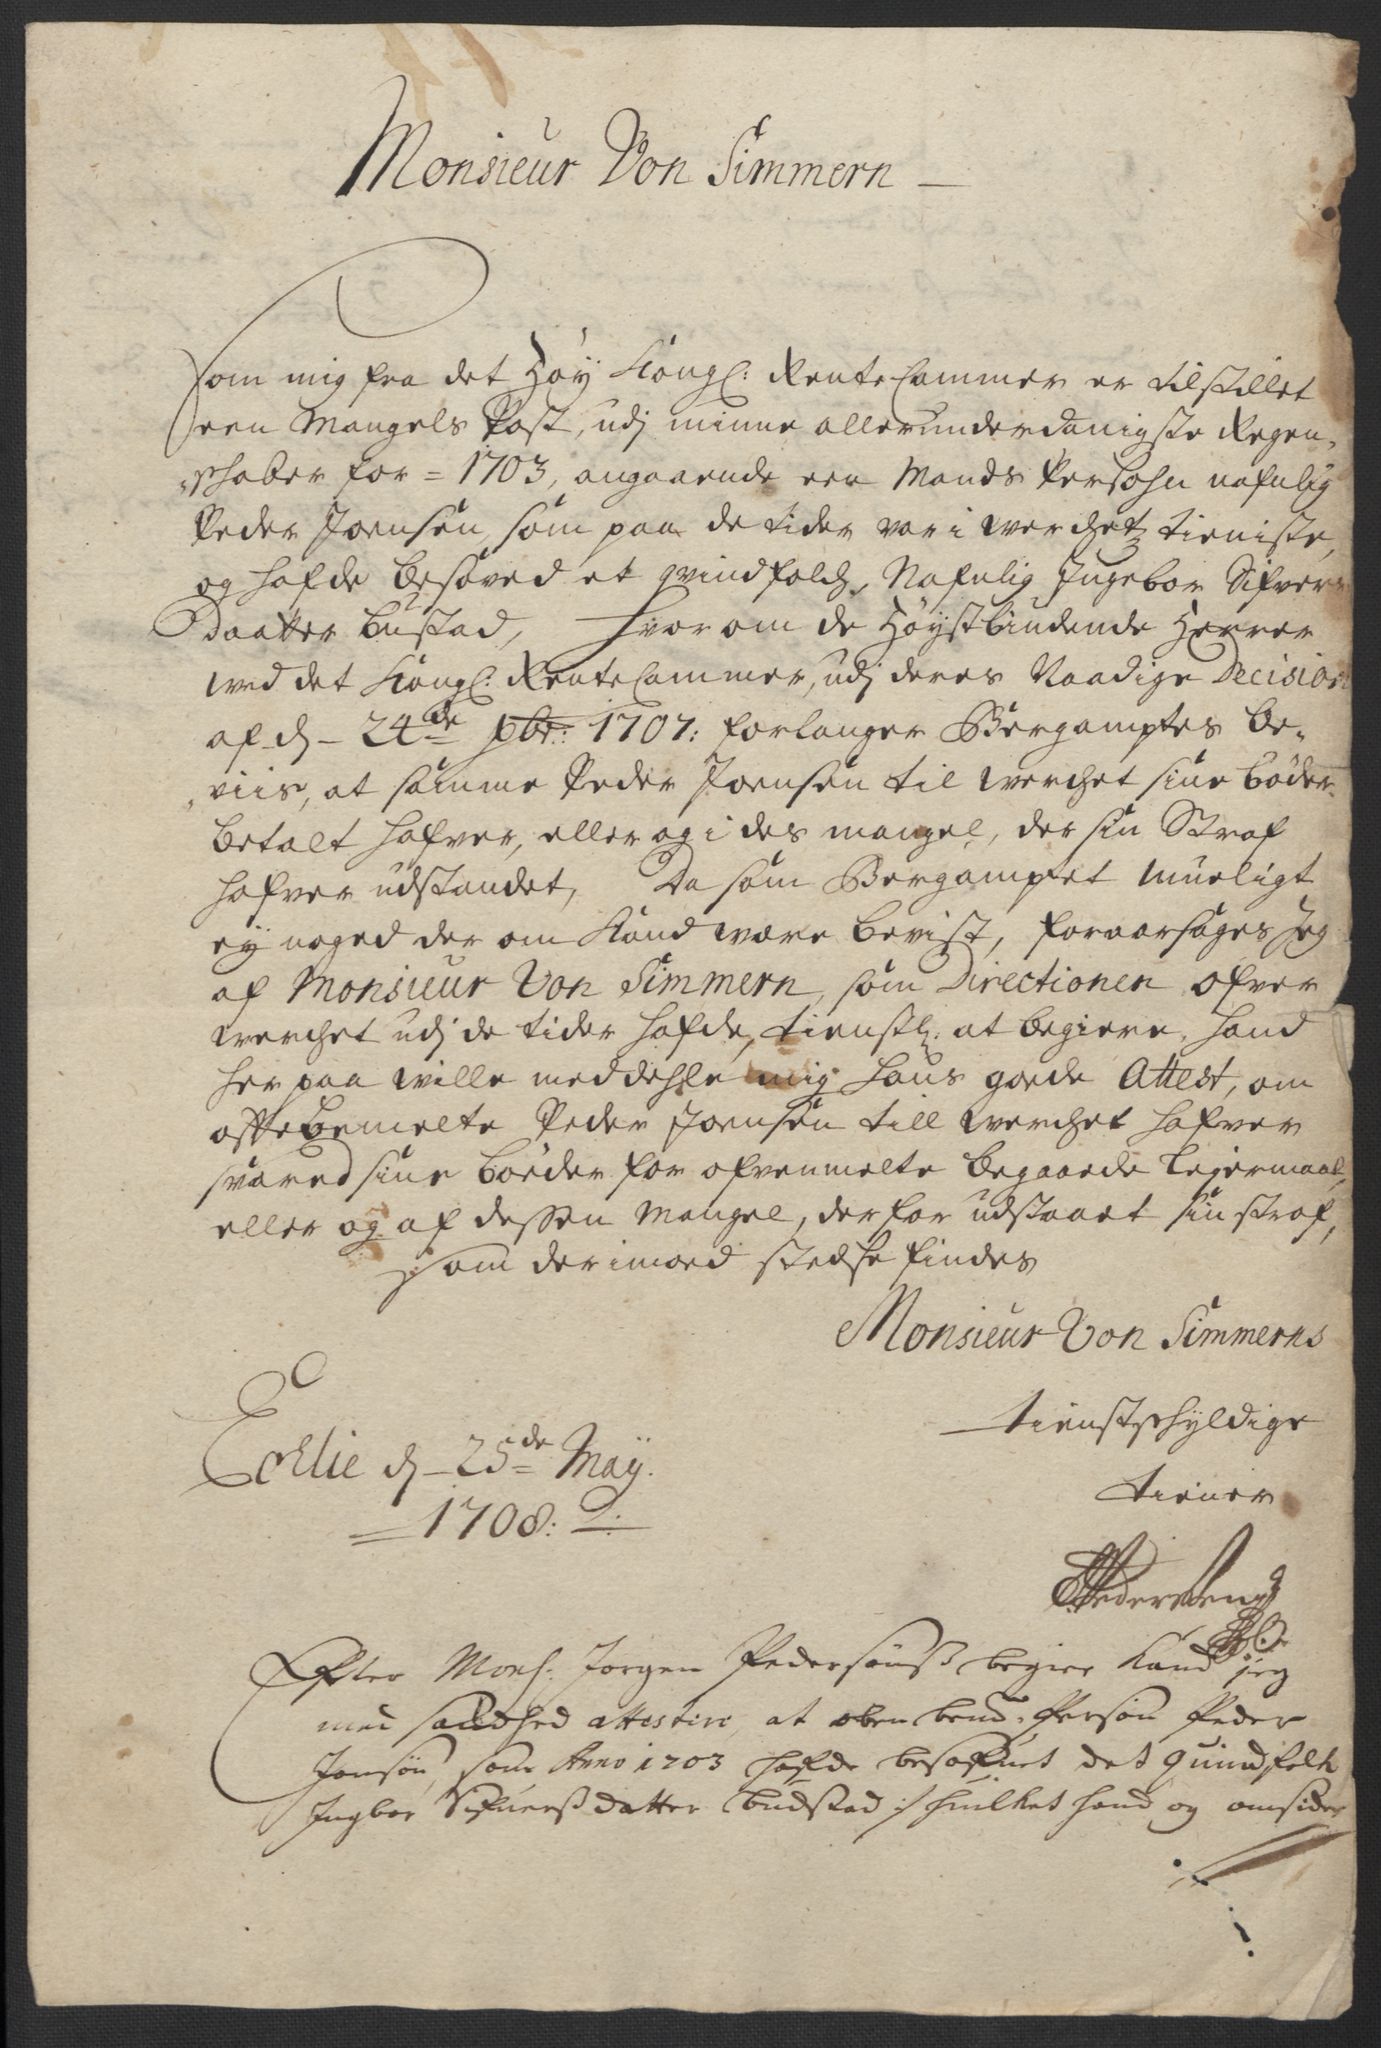 Monsieur Von Simmern
Som mig fra det Høy Kongl: Rente Cammer er tilstillet
een Mangels Post, udj minne allerunderdanigste Regen-
schaber for = 1703, angaaende een Mands Persohn nafnlig
Peder Joensøn, som paa de tider var i werchetz tieniste,
og hafde besøved et qvindfolch, Nafnlig Ingebor Sifvers
Daatter bustad, hvor om de Høystbiudende Herrer
wed det Kongl: Rente Cammer, udj deres Naadige Decision
af d. 24de 9br: 1707: forlanger Bergamptes be-
viis, at samme Peder Joensøn til werchet sine bøder
betalt hafver, eller og i des mangel, der sin Straf
hafver udstandet, Da som Bergamptet mueligt
ey noged der om kand være bevist, foraarsages Jeg
af Monsieur Von Simmern, som Directionen ofver
werchet udj de tider hafde, tienstl: at begiere, hand
her paa wille meddehle mig hans goede Attest, om
ofttebemelte Peder Joensøn till werchet hafver
svared sine bøeder for ofvenmelte begaaede lejermaal,
eller og af dessen Mangel, derfor udstaaet sin straf,
som derimoed stedse findes
Monsieur Von Simmerns
tienstschyldige
Echlie d. 25de Maÿ. tiener
1708:
Efter Mons: Jorgen Pedersønss begier kand jeg
med sandhed attestire, at oben bemd. Person Peder
Jonsøn, som Anno 1703 hafde besofuet det quindfolk
Ingbor Sifuerss datter budstad :/ huilket hand og omsider